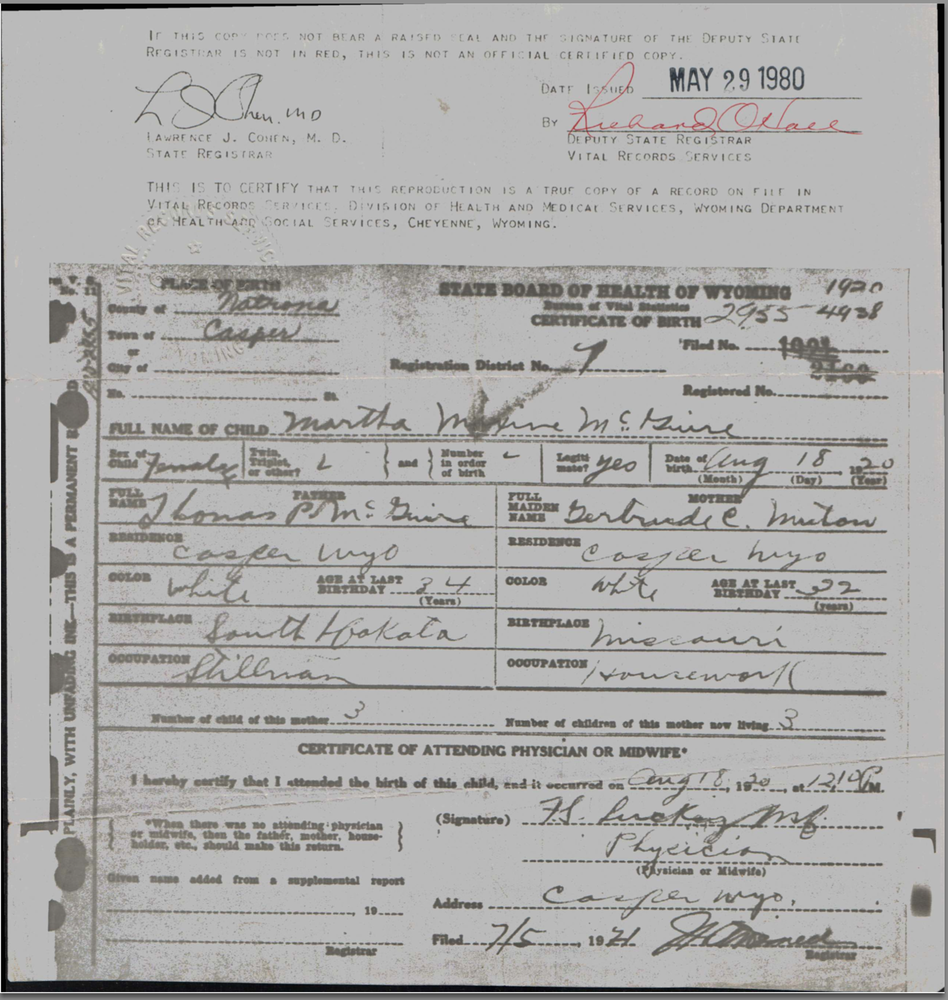 IF THIS COPY DOES NOT BEAR A RAISED SEAL AND THE SIGNATURE OF THE DEPUTY STATE
REGISTRAR IS NOT IN RED, THIS IS NOT AN OFFICIAL CERTIFIED COPY.
DATE ISSUED MAY 29 1980
L J Cohen, MD
BY Richard O'Hall
LAWRENCE J. COHEN, M. D.
DEPUTY STATE REGISTRAR
STATE REGISTRAR
VITAL RECORDS SERVICES
THIS IS TO CERTIFY THAT THIS REPRODUCTION IS A TRUE COPY OF A RECORD ON FILE IN
VITAL RECORDS SERVICES, DIVISION OF HEALTH AND MEDICAL SERVICES, WYOMING DEPARTMENT
OF HEALTH AND SOCIAL SERVICES, CHEYENNE, WYOMING.
PLAINLY, WITH UNFADING INK—THIS IS A PERMANENT
PLACE OF BIRTH
STATE BOARD OF HEALTH OF WYOMING 1920
County of Natrona
Bureau of Vital Statistics
CERTIFICATE OF BIRTH 2955-4938
Town of Casper
or
City of
Registration District No. 7
Filed No.
No. St.
Registered No.
FULL NAME OF CHILD Martha Maxine McGuire
Sex of Child Female
Twin, Triplet, or other?
and
Number in order of birth
Legitimate? yes
Date of birth Aug 18 1920
(Month) (Day) (Year)
FATHER
FULL NAME Thomas P. McGuire
MOTHER
FULL MAIDEN NAME Gertrude C.
RESIDENCE Casper Wyo
RESIDENCE Casper Wyo
COLOR White
AGE AT LAST BIRTHDAY 34 (Years)
COLOR White
AGE AT LAST BIRTHDAY 32 (years)
BIRTHPLACE South Dakota
BIRTHPLACE Missouri
OCCUPATION Stillman
OCCUPATION Housework
Number of child of this mother 3
Number of children of this mother now living 3
CERTIFICATE OF ATTENDING PHYSICIAN OR MIDWIFE*
I hereby certify that I attended the birth of this child, and it occurred on Aug 18, 1920, at 12,10 P M
*When there was no attending physician
or midwife, then the father, mother, house-
holder, etc., should make this return.
(Signature)
Physician
(Physician or Midwife)
Given name added from a supplemental report
Address Casper Wyo.
, 19
Registrar
Filed 7/5, 1921
Registrar